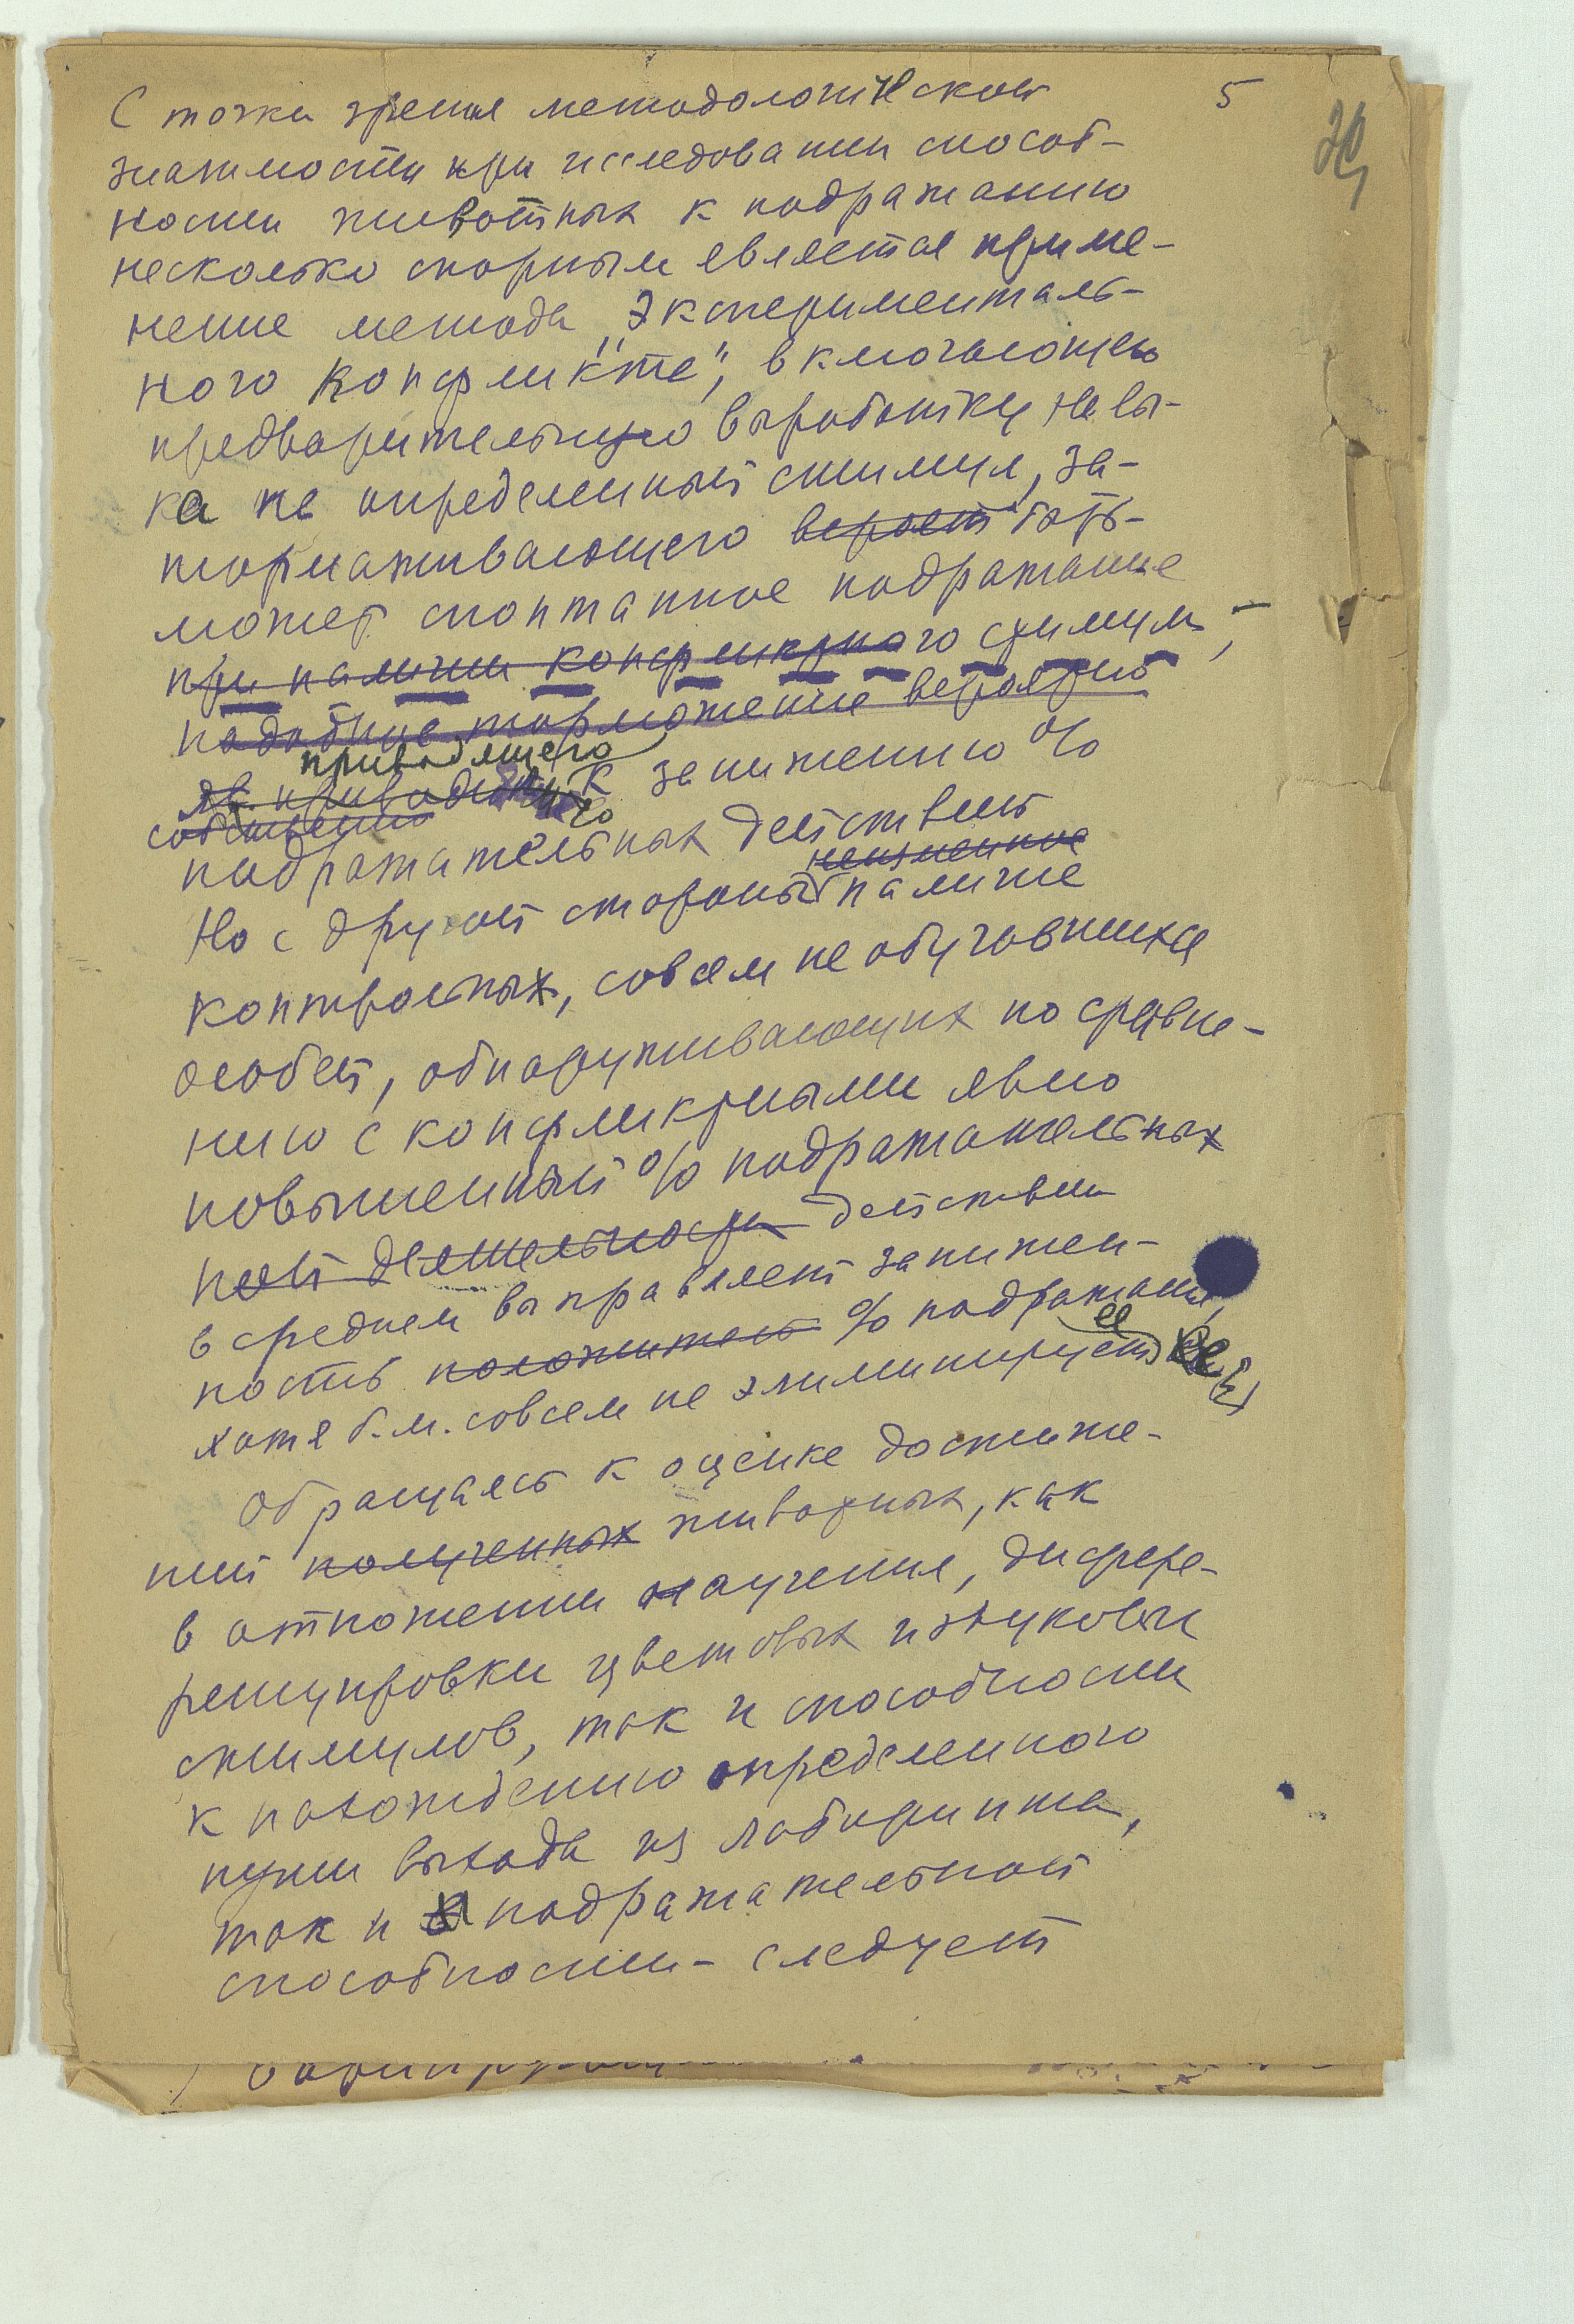 5
С точки зрения методологической
значимости при исследовании способ-
ности животных к подражанию
несколько спорным является приме-
нение метода „эксперименталь-
ного конфликта", включающего
предварительную выработку навы-
ка на определенный стимул, за-
тормаживающего вероят быть
может спонтанное подражание
при наличии конфликтного стимула,
подобные торможение вероятно
приводящего
к занижению %
собственно
подражательных действий
неизменное
Но с другой стороны наличие
контрольных, совсем не обучавшихся
особей, обнаруживающих по сравне-
нию с конфликтными явно
повышенный % подражательных
ной деятельности действий
в среднем выправляет занижен-
ность положител % подражания,
ее
хотя б.м. совсем не элиминирует
Обращаясь к оценке достиже-
ний полученных животных, как
в отношении научения, дифере-
ренцировки цветовых и звуковых
стимулов, так и способности
к нахождению определенного
пути выхода из лабиринта,
так и подражательной
способности - следует